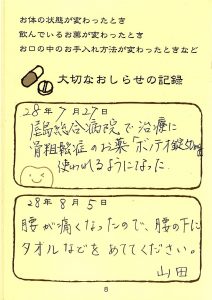 お体の状態が変わったとき
飲んでいるお薬が変わったとき
お口の中のお手入れ方法が変わったときなど
大切なおしらせの記録
28年7月27日
総合病院で治療に
骨粗鬆症のお薬 ボンテオ錠50mg
使われるようになった
28年8月5日
腰が痛くなったので、腰の下に
タオルなどをあててください。
山田
8